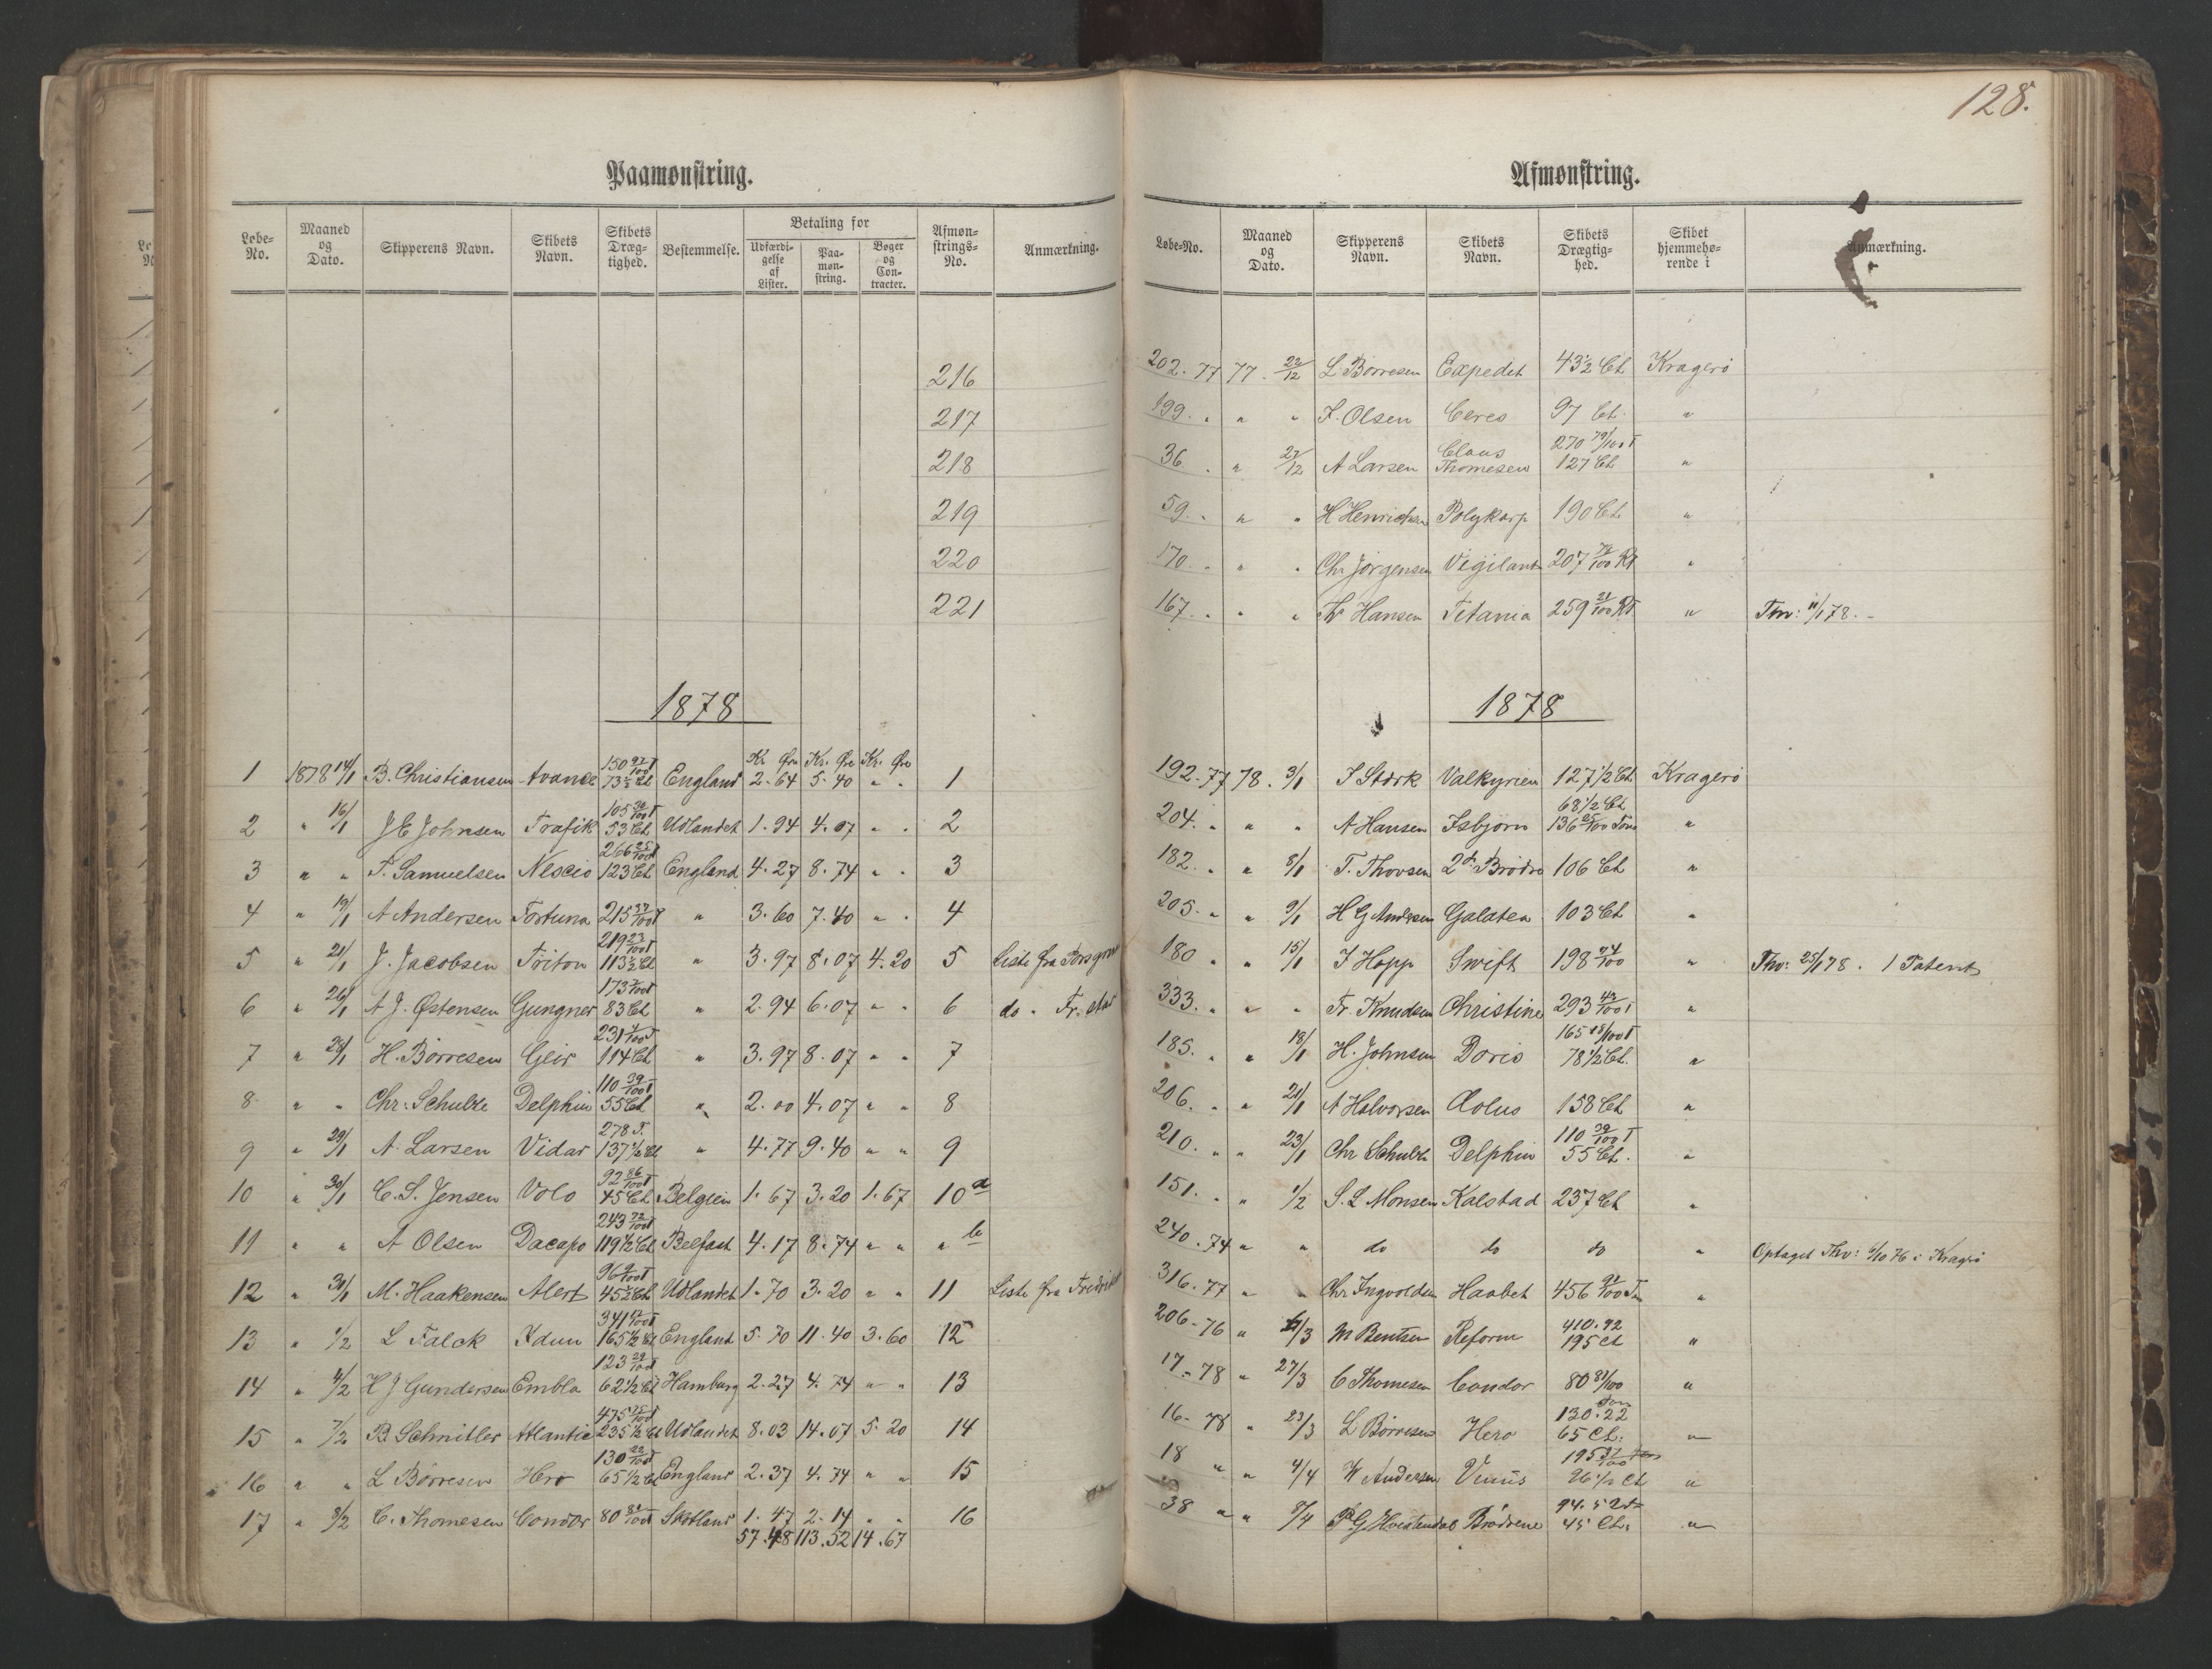 128.
Paamønstring.
Løbe-No. Maaned og Dato. Skipperens Navn. Skibets Navn. Skibets Dræg-tighed. Bestemmelse. Betaling for Udfærdi-gelse af Lister. Paa-møn-string. Bøger og Con-tracter. Afmøn-strings-No. Anmærkning.
216
217
218
219
220
221
1878
Kr. Øre Kr. Øre Kr. Øre
1 1878 14/1 B. Christiansen Avance 150 97/100 T 73 1/2 Cl England 2.64 5.40 " " 1
2 " 16/1 J E Johnsen Trafik 105 30/100 T 53 Cl Udlandet 1.94 4.07 " " 2
3 " " T. Samuelsen Nescio 266 25/100 T 123 Cl England 4.27 8.74 " " 3
4 " 19/1 A Andersen Fortuna 215 37/100 T " 3.60 7.40 " " 4
5 " 21/1 J. Jacobsen Triton 219 23/100 T 113 1/2 Cl " 3.97 8.07 4.20 5 Liste fra Porsgrun
6 " 26/1 A J. Østensen Gungner 173 T 83 Cl " 2.94 6.07 " " 6 do " Fr.stad
7 " 28/1 H. Børresen Geir 231 T 114 Cl " 3.97 8.07 " " 7
8 " " Chr. Schulze Delphin 110 39/100 T 55 Cl " 2.00 4.07 " " 8
9 " 29/1 A. Larsen Vidar 278 T. 137 1/2 Cl " 4.77 9.40 " " 9
10 " 30/1 C. S. Jensen Volo 92 86/100 T 45 Cl Belgien 1.67 3.20 1.67 10 a
11 " " A Olsen Dacapo 243 72/100 T 119 1/2 Cl Belfast 4.17 8.74 " " " b
12 " 31/1 M. Haakensen Alert 96 T 45 1/2 Cl Udlandet 1.70 3.20 " " 11 Liste fra
13 " 1/2 L Falck Idun 341 17/100 T 165 1/2 Cl England 5.70 11.40 3.60 12
14 " 4/2 H J Gundersen Embla 123 29/100 T 62 1/2 Cl Hamburg 2.27 4.74 " " 13
15 " 7/2 B. Schnitler Atlantic 475 T 235 1/2 Cl Udlandet 8.03 14.07 5.20 14
16 " " L Børresen Hero 130 22/100 T 65 1/2 Cl England 2.37 4.74 " " 15
17 " 8/2 C. Thomesen Condor 80 81/100 T Skotland 1.47 2.14 " " 16
57.48 113.52 14.67
Afmønstring.
Løbe-No. Maaned og Dato. Skipperens Navn. Skibets Navn. Skibets Drægtig-hed. Skibet hjemmehø-rende i Anmærkning.
202. 77 77. 22/12 L. Børresen Expedit 43 1/2 Cl Kragerø
199. " " " J. Olsen Ceres 97 Cl. "
36. " " 27/12 A Larsen Claus Thomesen 270 79/100 T 127 Cl "
59. " " " H Henrichsen Polykarp 190 Cl "
170. " " " Chr Jörgensen Vigilant 207 72/100 Rt "
167. " " " Hansen Titania 259 21/100 Rt " Thv: 11/1 78.
1878
192. 77 78. 3/1 J Stork Valkyrien 127 1/2 Cl Kragerø
204. " " " A Hansen Isbjörn 68 1/2 Cl 136 25/100 Tons "
182. " " 8/1 T. Thovsen 2de Brödre 106 Cl "
205. " " 9/1 H G Andersen Galatea 103 Cl "
180 " " 15/1 J Hopp Swift 198 74/100 " Thv: 25/1 78. 1 Patent
333. " " " Fr. Knudsen Christine 293 43/100 T "
185. " " 18/1 H. Johnsen Doris 165 18/100 T 78 1/2 Cl. "
206. " " 21/1 A Halvorsen Æolus 158 Cl "
210. " " 23/1 Chr Schulze Delphin 110 39/100 T 55 Cl. "
151. " " 1/2 S. L Monsen Kalstad 237 Cl "
240. 74 " " do do do " Optaget Thv: 76 i Kragrø
316. 77 " " Chr Ingvoldsen Haabet 456 91/100 Tn "
206. 76 " 5/3 M Bentsen Reform 410.92 195 Cl "
17. 78 " 27/3 C Thomesen Condor 80 81/100 Ton "
16. 78 " 23/3 L Børresen Hero 130.22 65 Cl. "
18 " " 4/4 W Andersen Venus 195 37/100 Ton 96 1/2 Cl "
38 " " 8/4 P G Hvistendal Brödrene 94.52 45 Cl. "